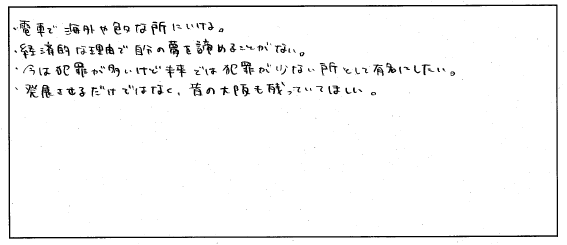 ・電車で海外や色々な所にいける。
・経済的な理由で自分の夢を諦めることがない。
・今は犯罪が多いけど未来では犯罪が少ない所として有名にしたい。
・発展させるだけではなく、昔の大阪も残っていてほしい。